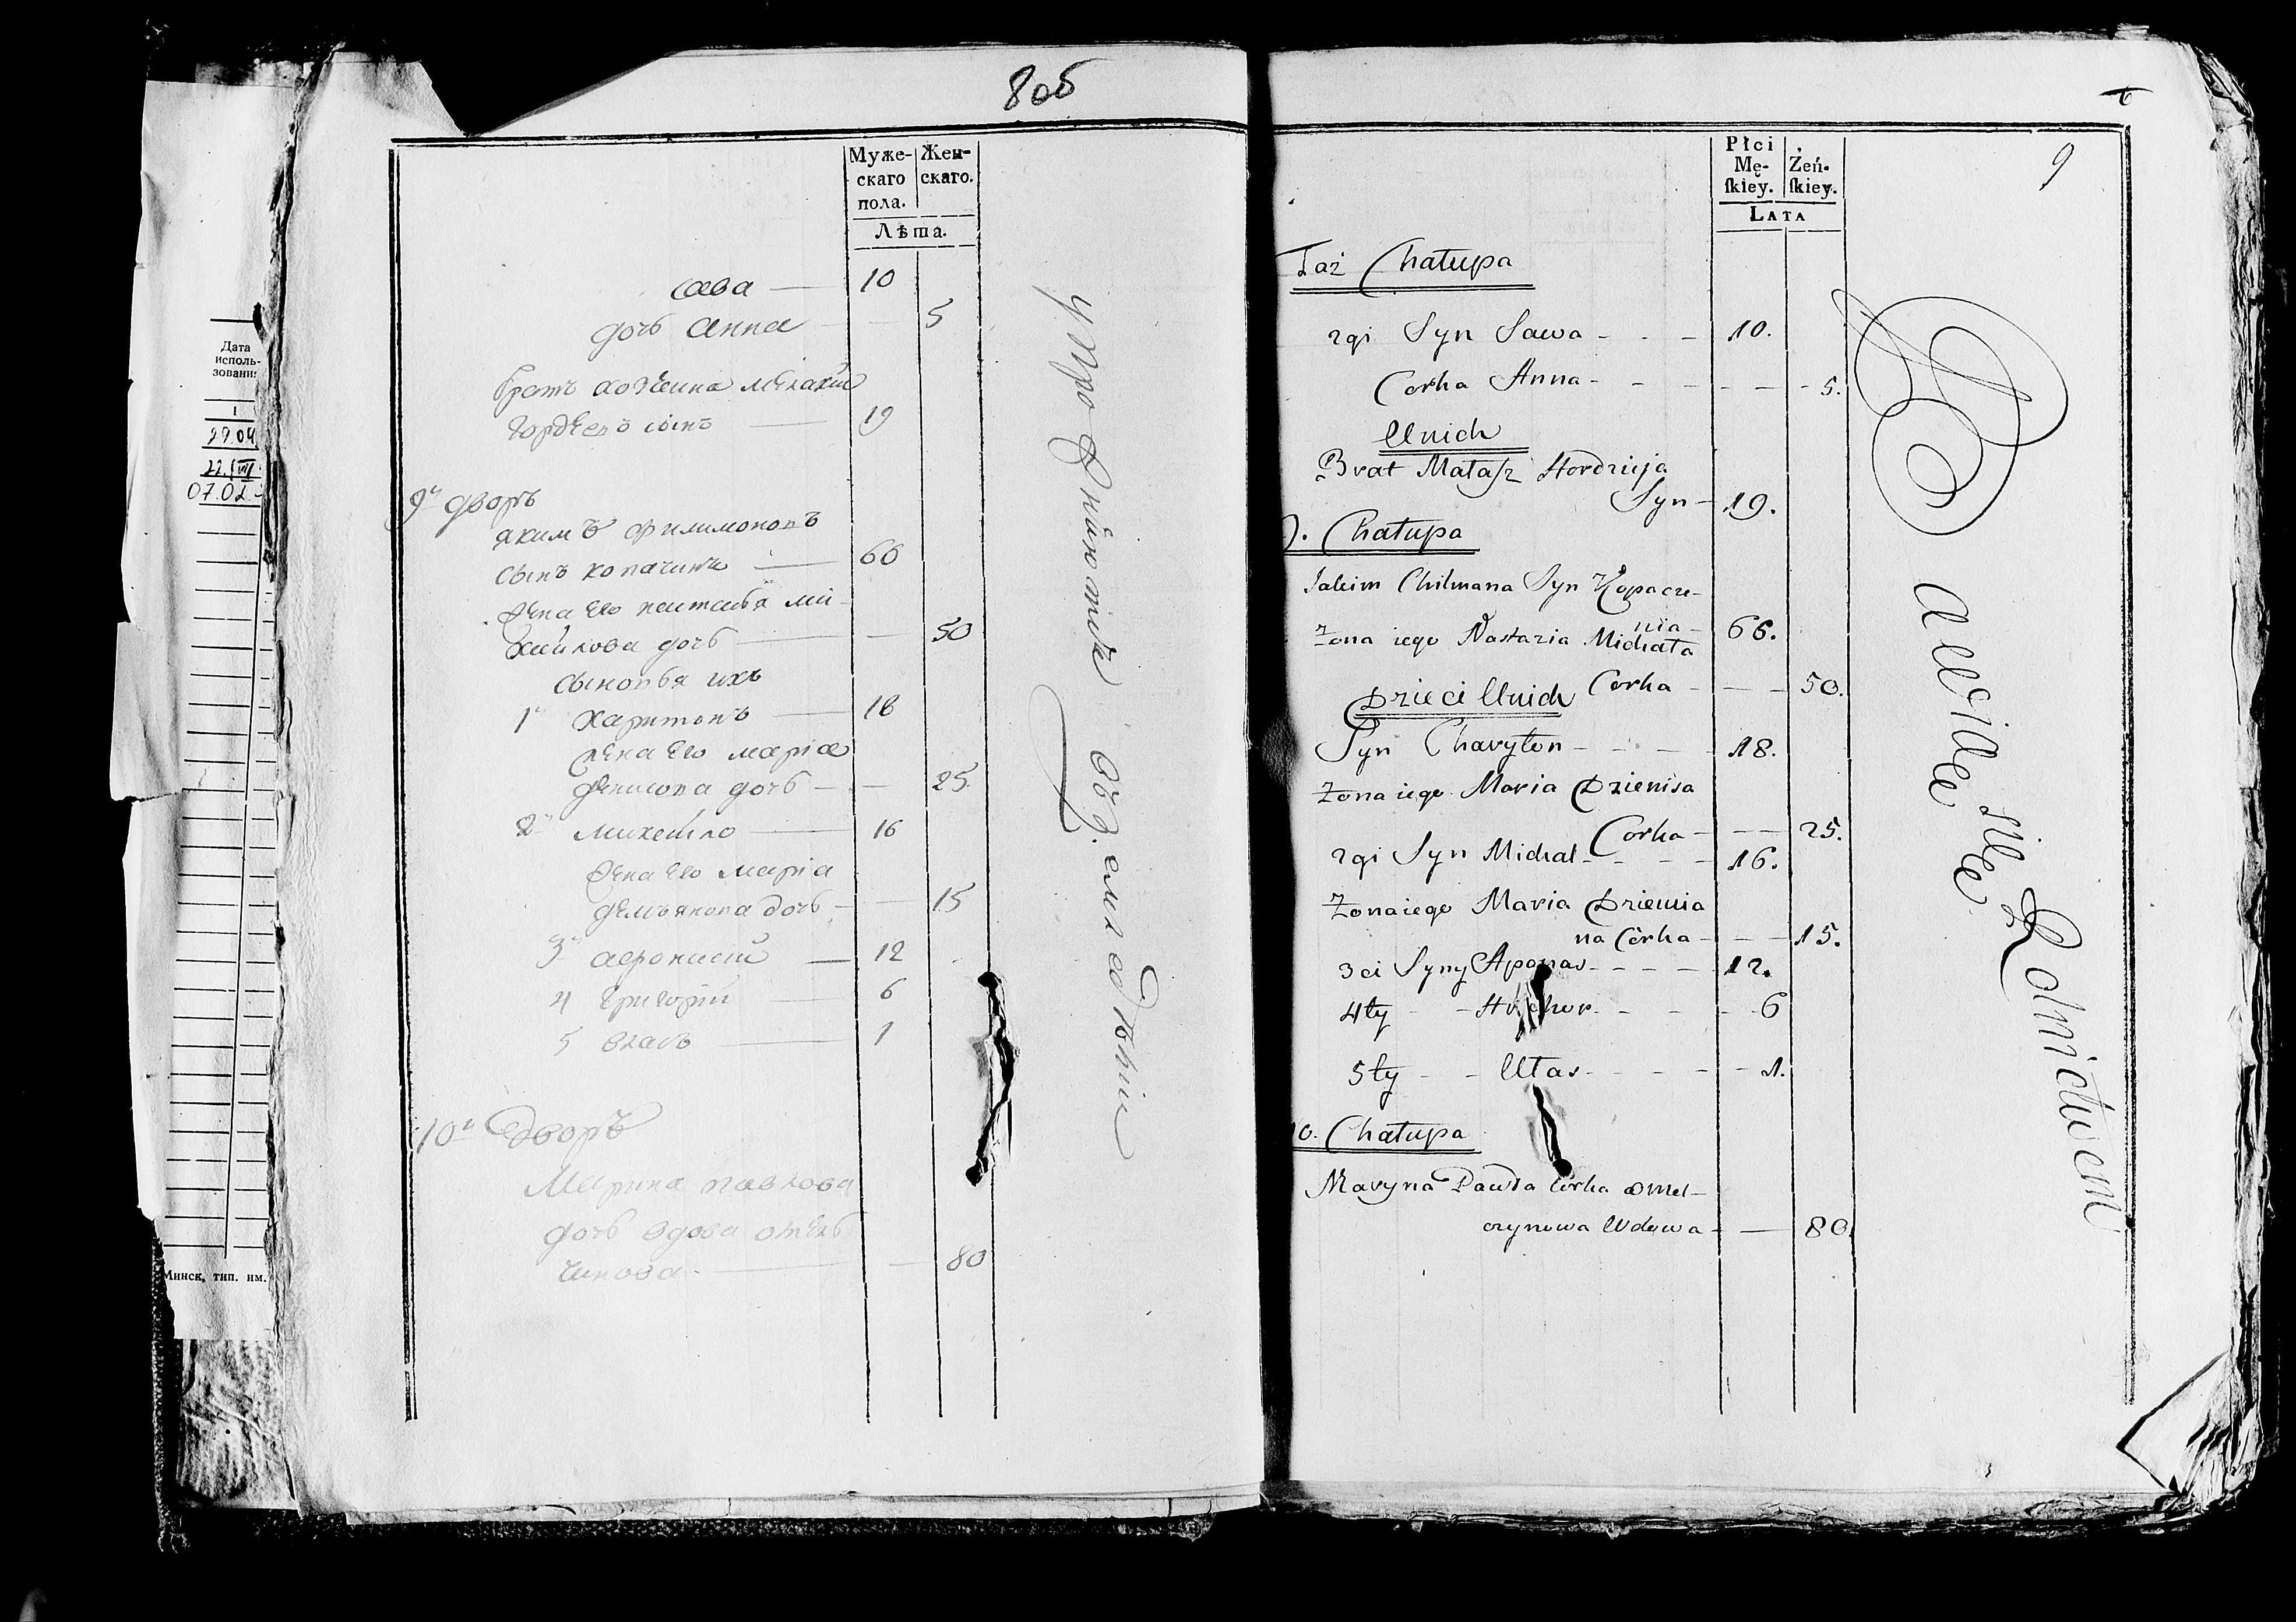 Дата
исполь-
зования
1
29.04
22.VIII
07.02.
Минск, тип. им.
8об
Муже-
скаго
пола.
Жен-
скаго.
Лѣта.
сава — 10
дочь анна — 5
братъ
гордѣевъ сынъ — 19
9й дворъ
якимъ филимоновъ
сынъ копачиня — 66
жена его настасья ми-
хайлова дочь — 50
сыновья ихъ
1й харитонъ — 18
жена его марія
денисова дочь — 25
2й михайло — 16
жена его марія
демьянова дочь — 15
3й афонасий — 12
4 григорій — 6
5 власъ — 1
10й дворъ
Марина павлова
дочь вдова омель
чинова — 80
9
Płci
Mę-
ſkiey.
Żeń-
ſkiey.
Lata
Taż Chałupa
2gi Syn Sawa - - - 10.
Corka Anna - - - - - 5.
Unich
Brat Małaſz Hordzieja
Syn - 19.
9. Chałupa
Jakim Chilmana Syn Kopacze-
nia - 66.
Żona iego Nastazia Michała
Corka - - - 50.
Dzieci Unich
Syn Charyton - - - 18.
Żona iego Maria Dzienisa
Corka - - - 25.
2gi Syn Michał - - - 16.
Żona iego Maria Dziemia
na Córka - - - 15.
3ci Syny Apanas - - - - 12.
4ty - - Hrehor - - - - 6
5ty - - Ułas - - - - 1.
10. Chałupa
Maryna Pawła Córka Omel-
czynowa Wdowa - - 80.
Rolnictwem